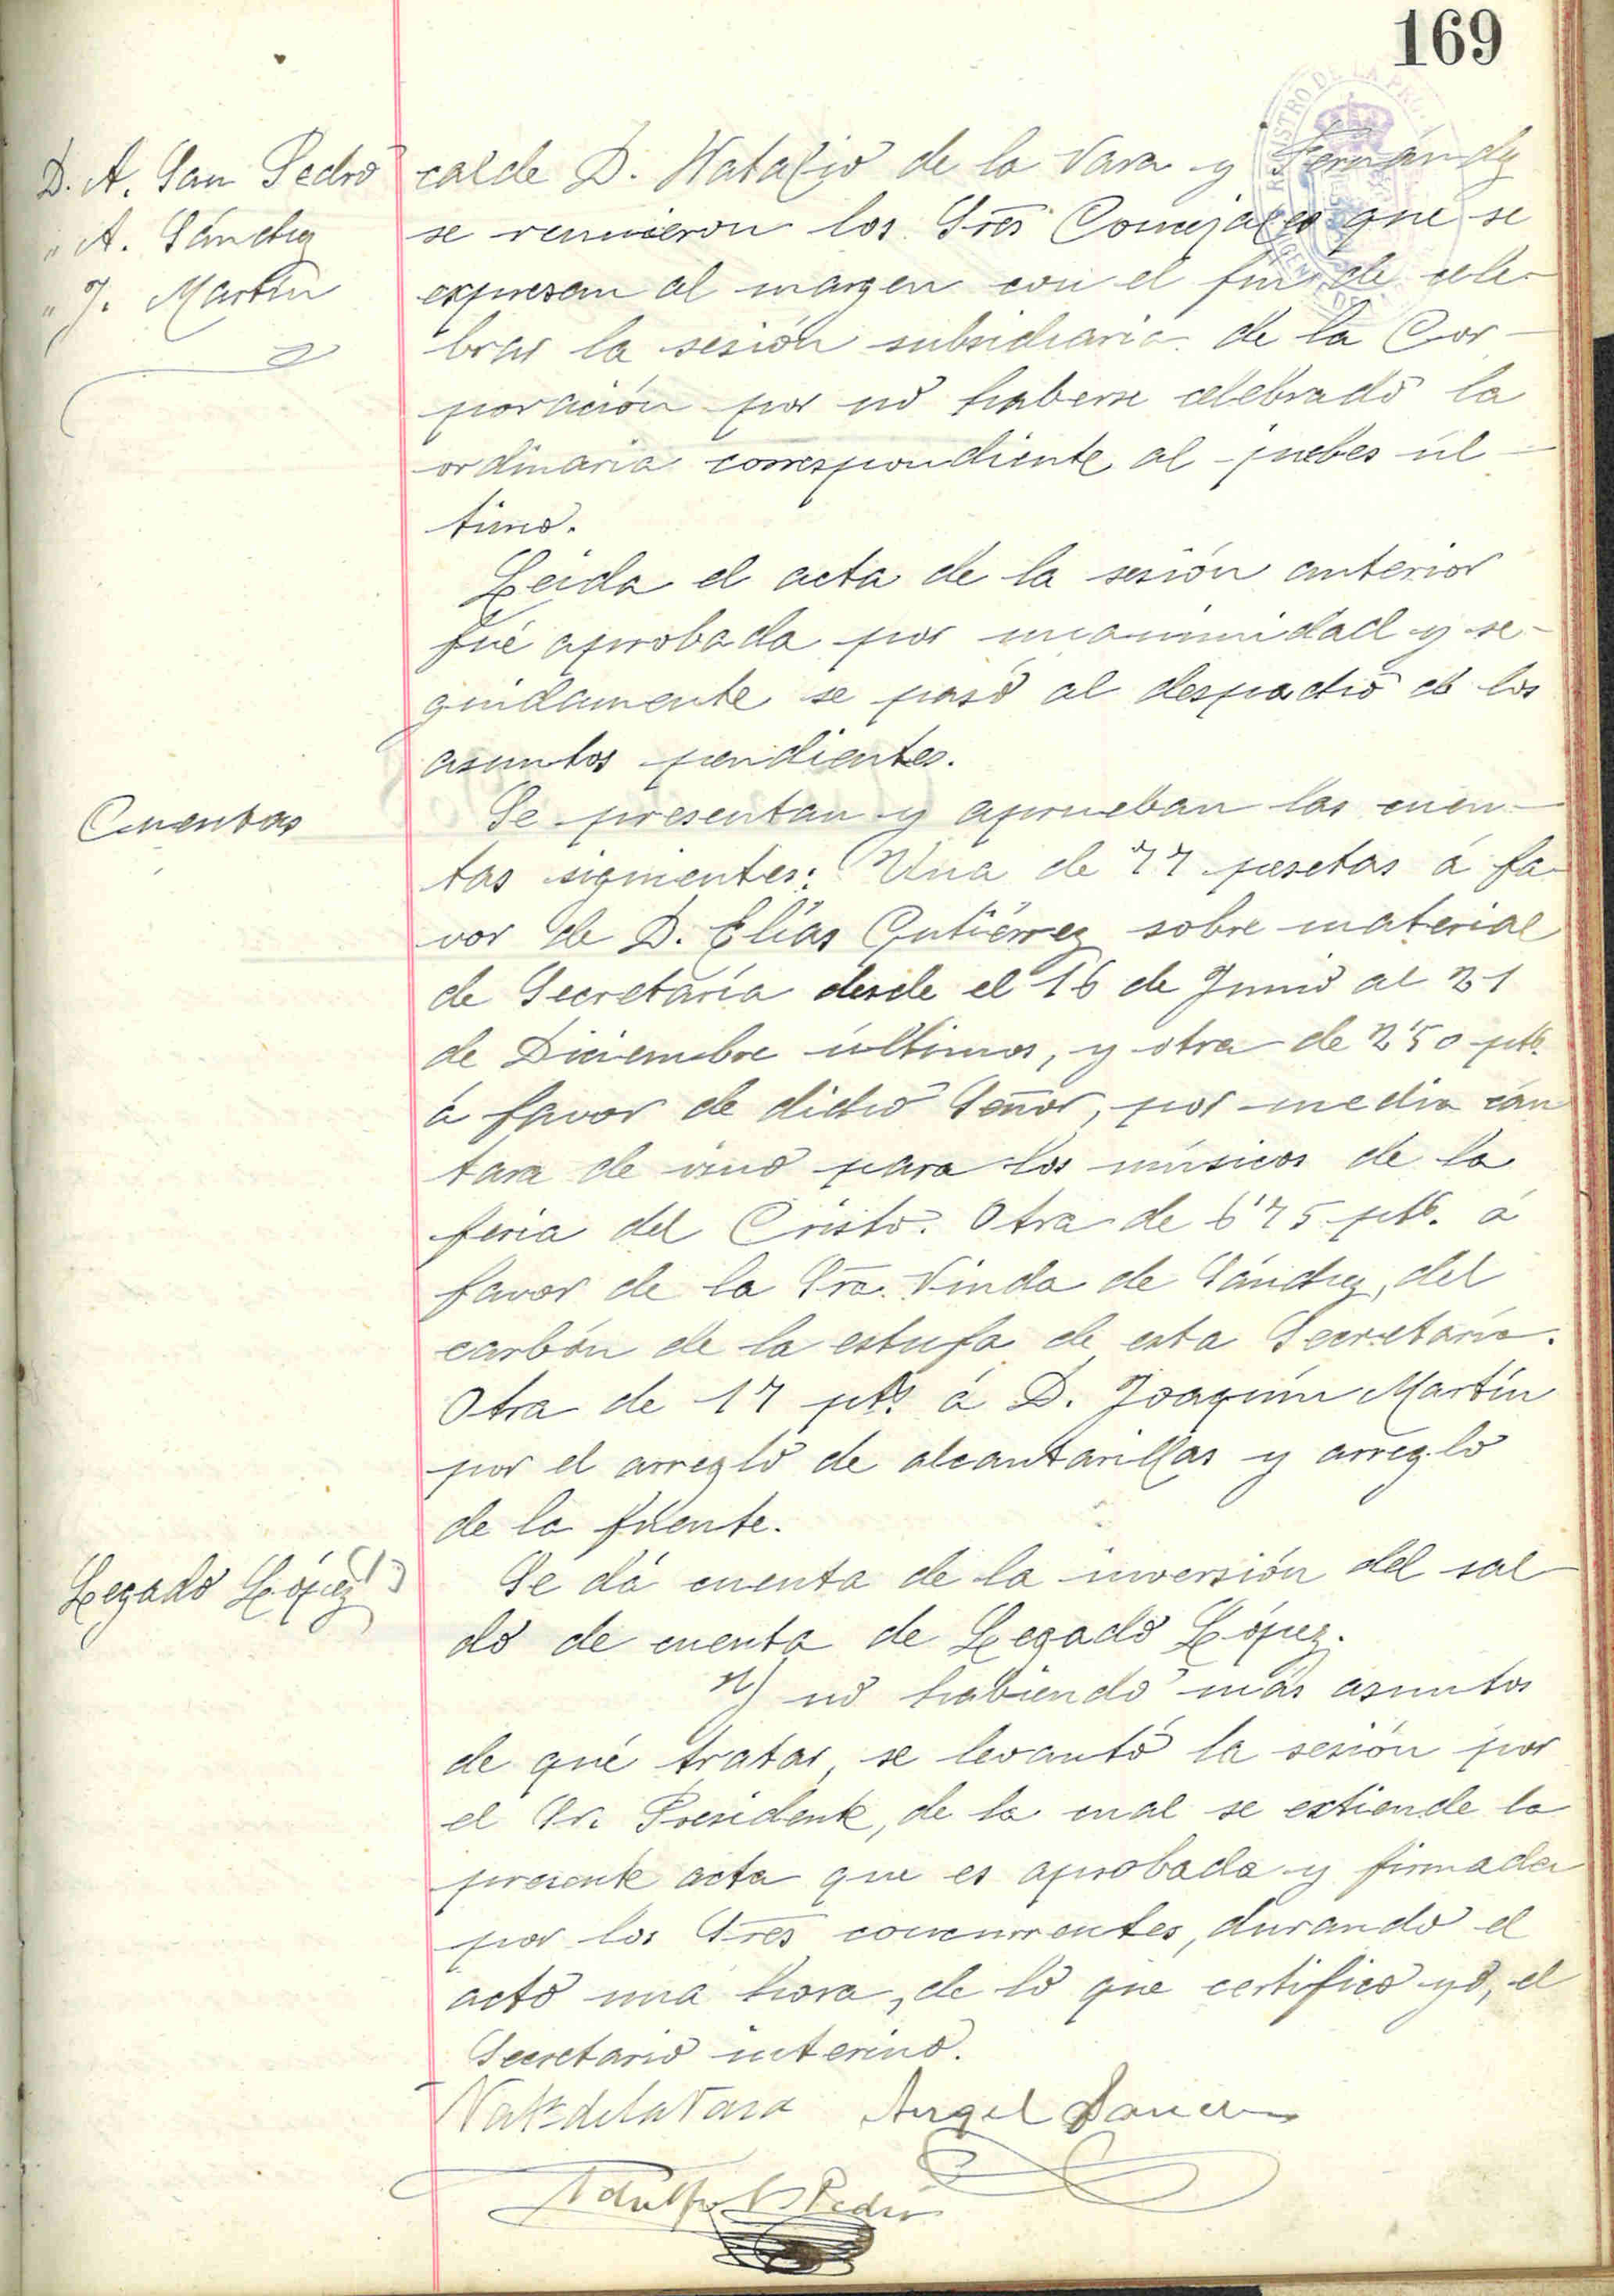 169
D. A. San Pedro
" A. Sánchez
" J. Martín
calde D. Natalio de la Vara y Fernández
se reunieron los Sres Concejales que se
expresan al margen con el fin de cele-
brar la sesión subsidiaria de la Cor-
poración por no haberse celebrado la
ordinaria correspondiente al juebes úl-
timo.
Leida el acta de la sesión anterior
fué aprobada por unanimidad y se-
guidamente se pasó al despacho de los
asuntos pendientes.
Cuentas
Se presentan y aprueban las cuen-
tas siguientes: Una de 77 pesetas á fa-
vor de D. Elías Gutiérrez sobre material
de Secretaría desde el 16 de Junio al 31
de Diciembre últimos, y otra de 2'50 pts.
á favor de dicho Señor, por media cán
tara de vino para los músicos de la
feria del Cristo. Otra de 6'75 pts. á
favor de la Sra. Viuda de Sánchez, del
carbón de la estufa de esta Secretaría.
Otra de 17 pts. á D. Joaquín Martín
por el arreglo de alcantarillas y arreglo
de la fuente.
Legado López
Se dá cuenta de la inversión del sal
do de cuenta de Legado López.
Y no habiendo más asuntos
de qué tratar, se levantó la sesión por
el Sr. Presidente, de la cual se extiende la
presente acta que es aprobada y firmada
por los Sres concurrentes, durando el
acto una hora, de lo que certifico yo, el
Secretario interino.
Nat.º de la Vara Angel Sanc
Adulfo S Pedro